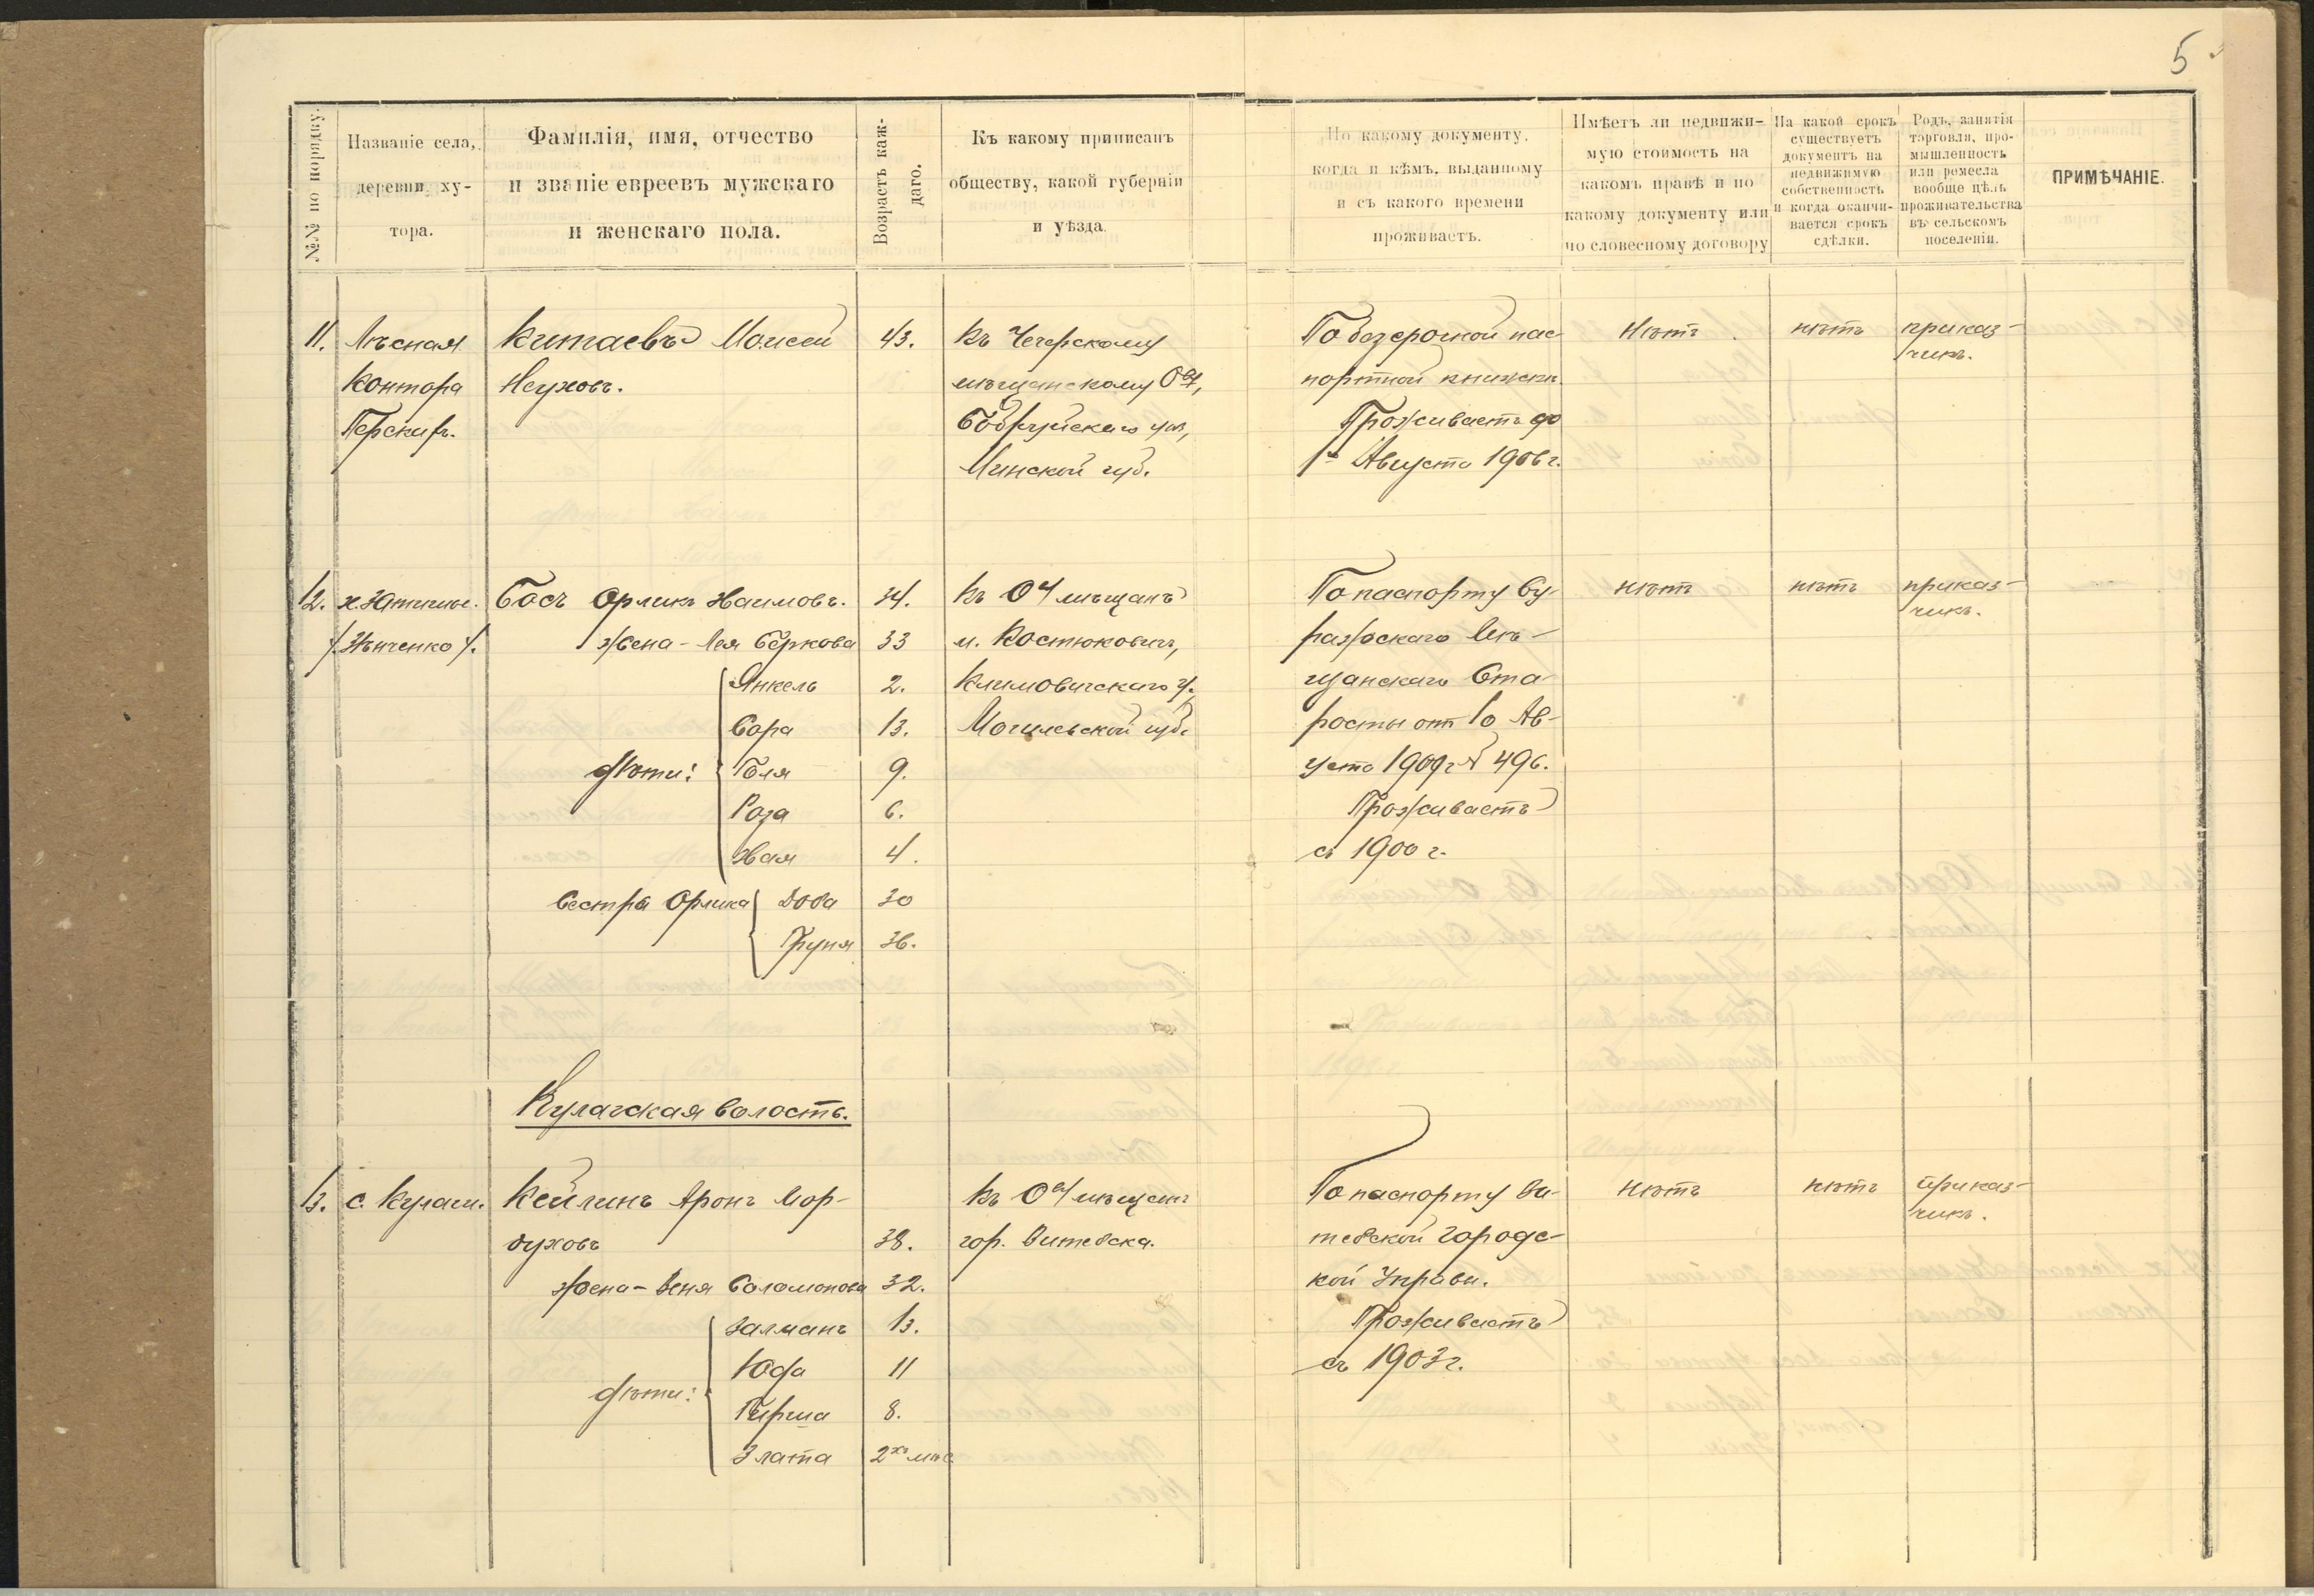 5
№№ по порядку.
Названіе села,
деревни, ху-
тора.
Фамилія, имя, отчество
и званіе евреевъ мужскаго
и женскаго пола.
Возрастъ каж-
даго.
Къ какому приписанъ
обществу, какой губерніи
и уѣзда.
По какому документу,
когда и кѣмъ, выданному
и съ какого времени
проживаетъ.
Имѣетъ ли недвижи-
мую стоимость на
какомъ правѣ и по
какому документу или
по словесному договору
На какой срокъ
существуетъ
документъ на
недвижимую
собственность
и когда оканчи-
вается срокъ
сдѣлки.
Родъ, занятія
торговля, про-
мышленность
или ремесла
вообще цѣль
проживательства
въ сельскомъ
поселеніи.
ПРИМѢЧАНІЕ.
11.
Лѣсная
Контора
Китаевъ Моисей
Неуховъ.
43.
Къ Чечерскому
мѣщанскому
Бобруйскаго
Минской губ.
По безсрочной пас-
портной книжкѣ.
Проживаетъ до
Августа 1906 г.
Нѣтъ
нѣтъ
приказ-
чикъ.
12.
Босъ Орликъ Хаимовъ.
34.
жена - Лея Беркова
33
дѣти:
Янкель
2.
Сора
13.
Голя
9.
Роза
6.
Хая
4.
Сестры Орлика
Доба
30
Груня
36.
Къ мѣщанъ
м. Костюковичъ,
Климовичскаго у.
Могилевской губ.
По паспорту Су-
ражскаго Мѣ-
щанскаго Ста-
росты отъ 10 Ав-
густа 190 г. № 496.
Проживаетъ
съ 1900 г.
нѣтъ
нѣтъ
приказ-
чикъ.
Кулагская волость.
13.
с. Кулаги.
Кейлинъ Аронъ Мор-
духовъ
38.
жена - Соломонова
32.
дѣти:
Залманъ
13.
Юда
11
Гирша
8.
Злата
2хъ мѣс
Къ мѣщанъ
гор. Витебска.
По паспорту Ви-
тебской Городс-
кой Управы.
Проживаетъ
съ 1903 г.
нѣтъ
нѣтъ
приказ-
чикъ.